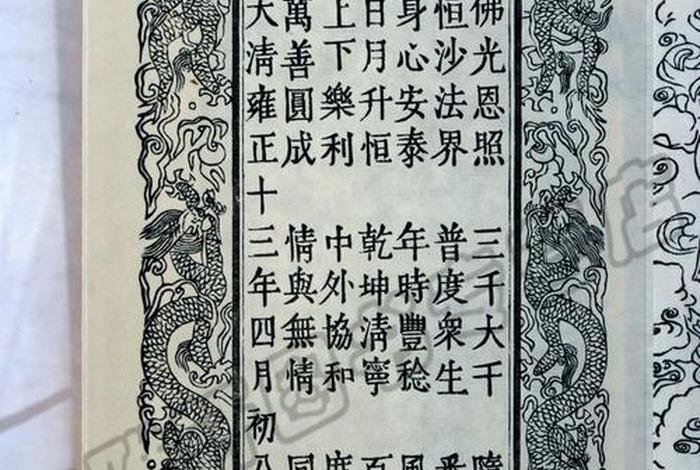 佛光恩照　三千大千
恒沙法界　普度衆生
身心安泰　年時豐稔　風
日月升恒　乾坤清寧　百
上下樂利　中外協和
萬善圓成　情與無情　同
大清雍正十三年四月初八